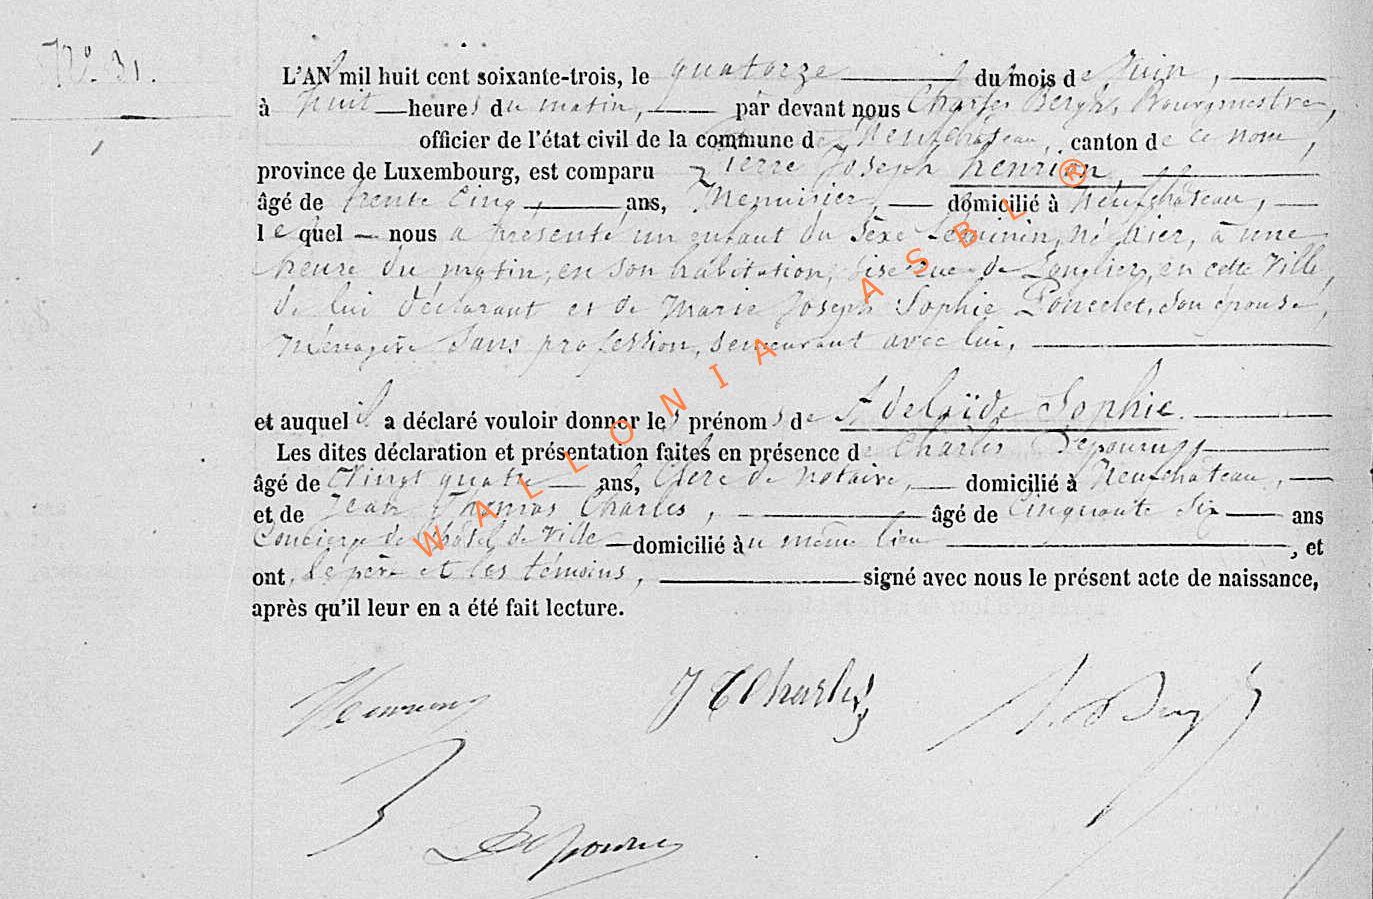 N° 31.
L'AN mil huit cent soixante-trois, le quatorze du mois de Juin,
à huit heures du matin, par devant nous Charles Bergh, Bourgmestre,
officier de l'état civil de la commune de Neufchâteau, canton de ce nom,
province de Luxembourg, est comparu Pierre Joseph henrion,
âgé de trente cinq, ans, Menuisier, domicilié à Neufchâteau,
lequel nous a présenté un enfant du sèxe féminin, né hier, à une
heure du matin, en son habitation, sise rue de Longlier, en cette Ville,
de lui déclarant et de Marie Joseph Sophie Poncelet, son épouse,
Ménagère sans profession, demeurant avec lui,
et auquel il a déclaré vouloir donner les prénoms de Adelaïde Sophie.
Les dites déclaration et présentation faites en présence de Charles
âgé de Vingt quatre ans, Clerc de notaire, domicilié à Neufchâteau,
et de Jean Thomas Charles, âgé de Cinquante six ans
Concierge de l'hôtel de Ville domicilié au même lieu , et
ont, le père et les témoins, signé avec nous le présent acte de naissance,
après qu'il leur en a été fait lecture.
Henrion J T Charles
WALLONIA ASBL ®